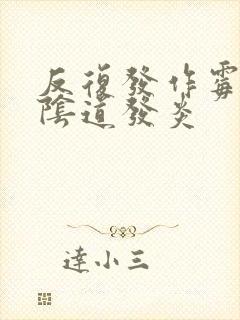 反復發作霉
陰道發炎
達小三